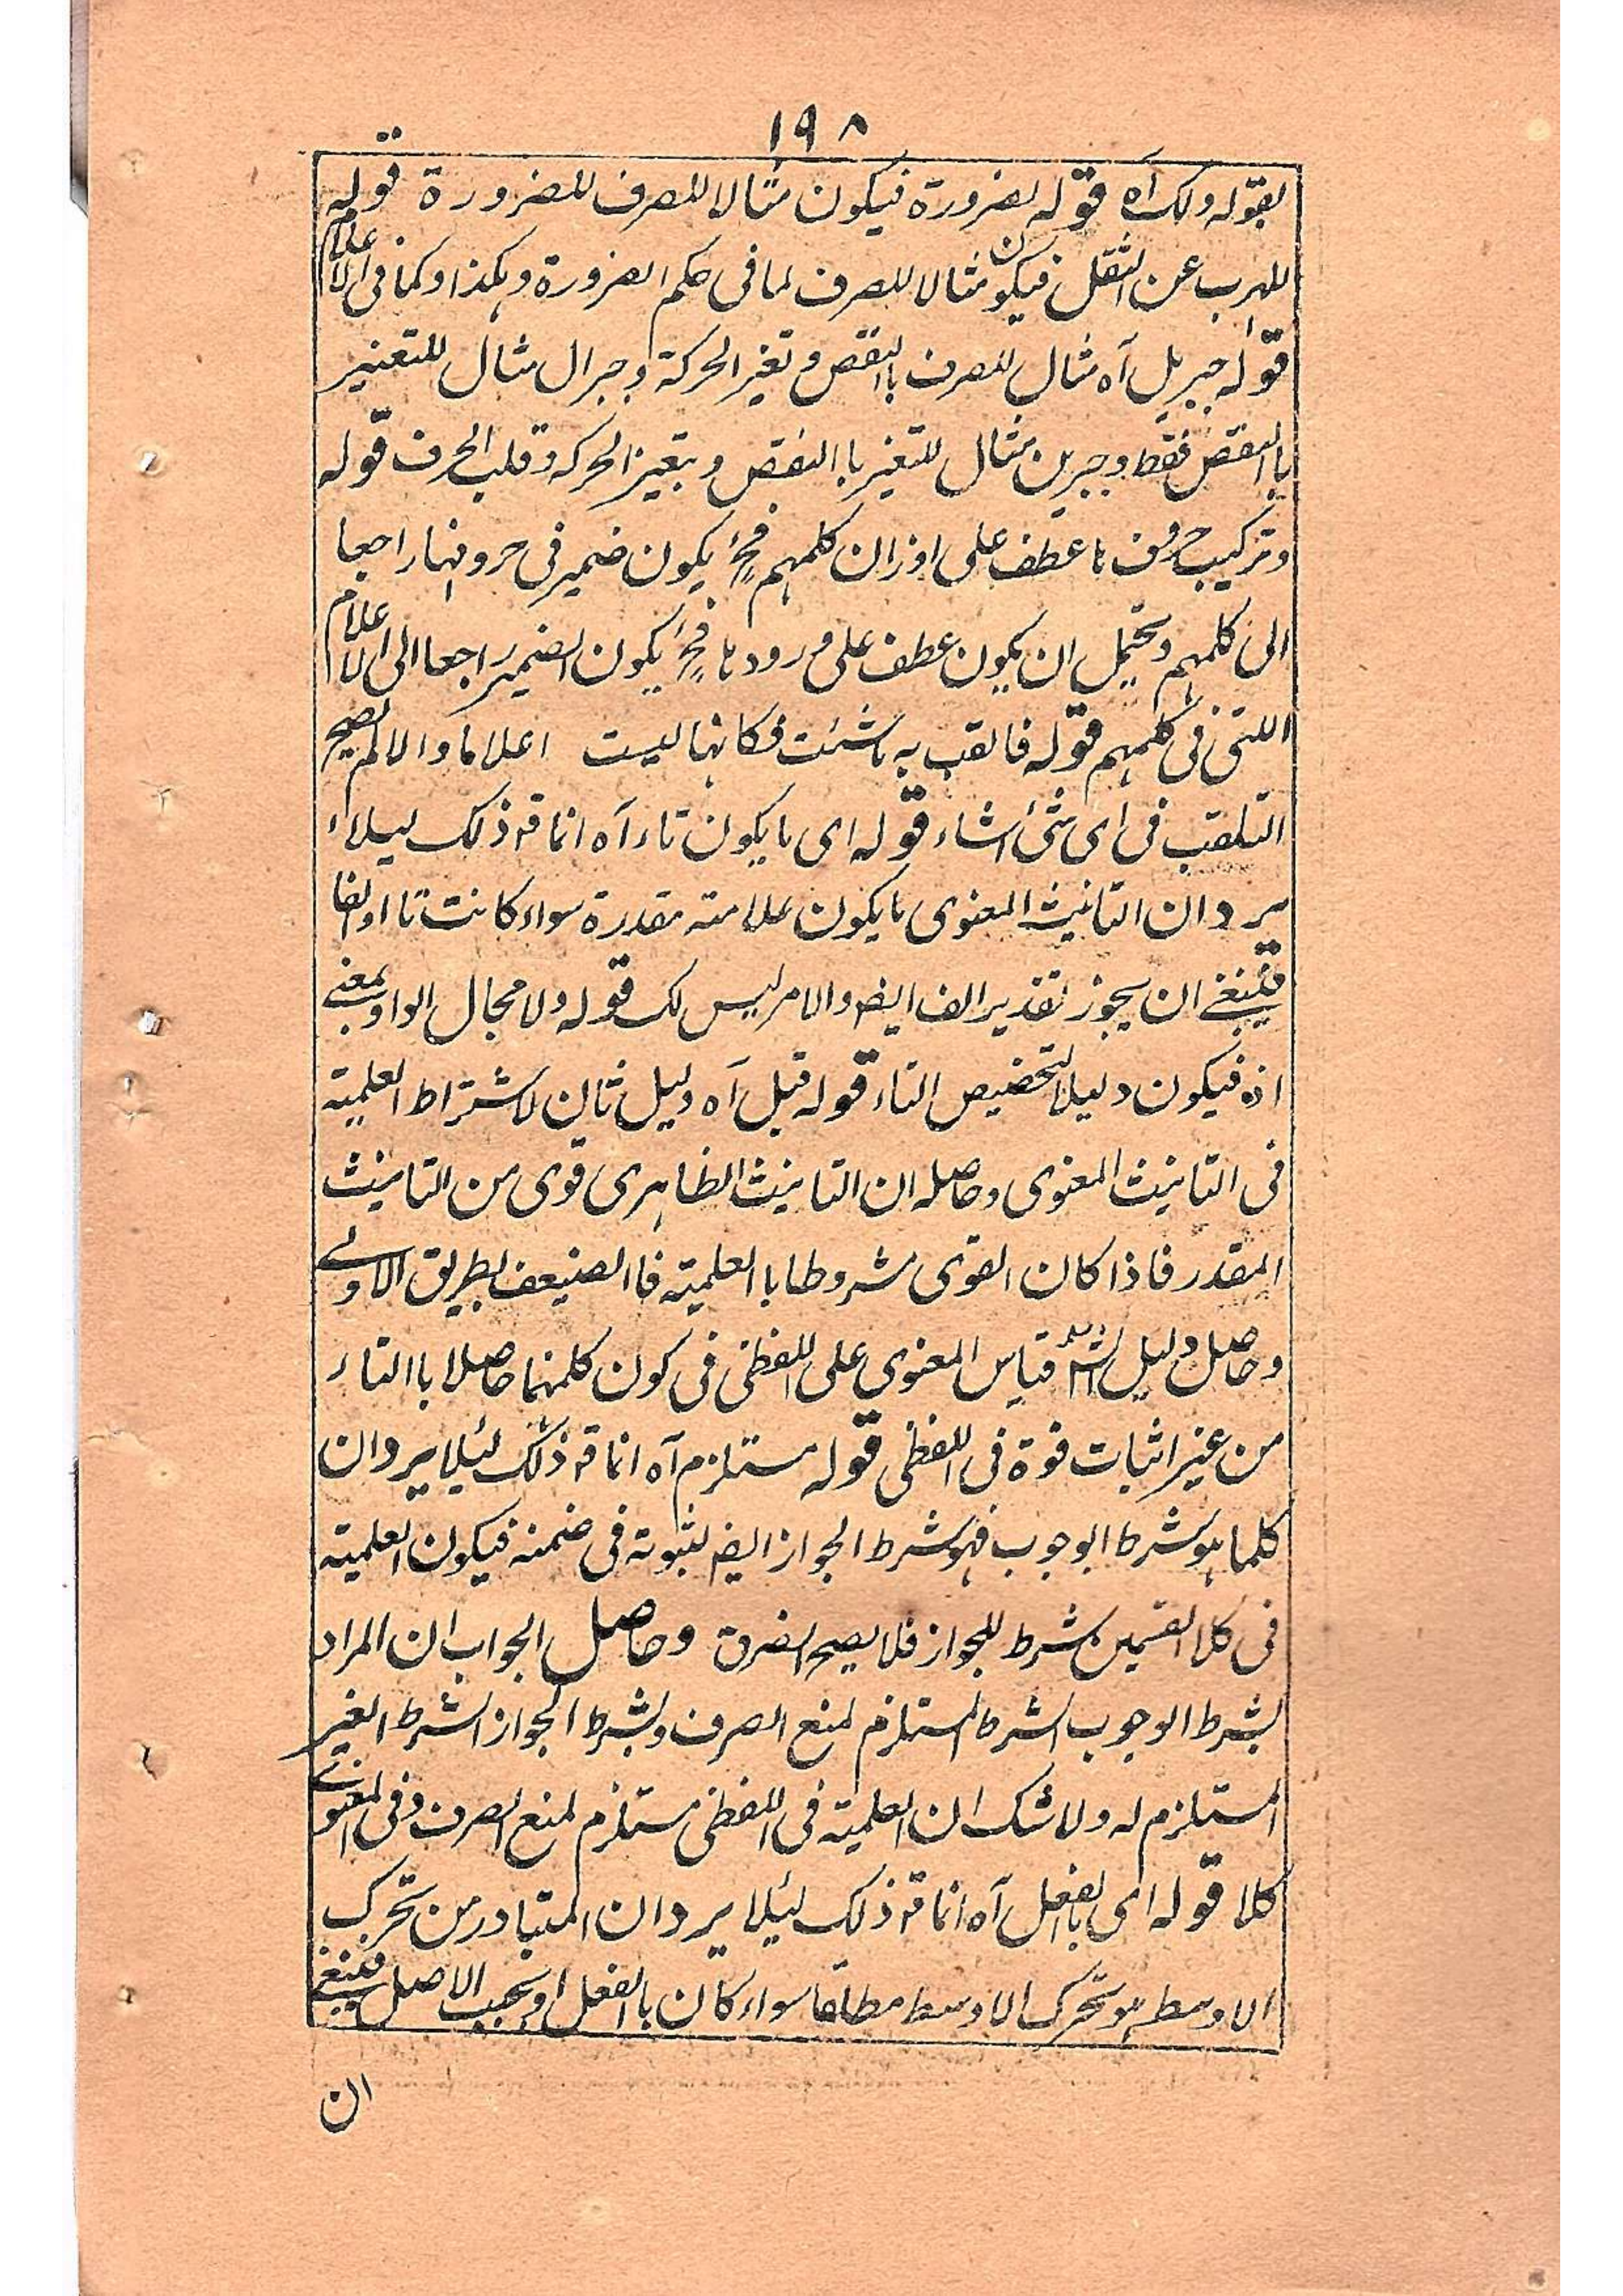 ١٩٨
بقوله ولك آه قوله لضرورة فيكون مثالا للصرف للضرورة قوله
للهرب عن الثقل فيكون مثالا للصرف لما فى حكم الضرورة وهكذا وكما فى الاعلام
قوله جبريل آه مثال للصرف باالنقص وتغير الحركة وجبرال مثال للتعنير
باالنقص فقط وجبرين مثال للتغير باالنقص وبتغير الحركه وقلب الحرف قوله
وتركيب حروف ها عطف على اوزان كلمهم فح يكون ضمير فى حروفها راجعا
الى كلمهم ويحتمل ان يكون عطف على ورودها فح يكون الضمير راجعا الى الاعلام
اللتى فى كلمهم قوله فالقب به ما شئت فكانها ليست اعلاما والا لم يصح
التلقب فى اى شئ شاء قوله اى ما يكون تاء آه انما قه ذلك ليلاء
يرد ان التانيث المعنوى ما يكون علامته مقدرة سواء كانت تا او الفا
فينبغى ان يجوز تقدير الف ايض والامر ليس لك قوله ولا مجال الواو بمعنى
اذ فيكون دليلا لتخصيص التاء قوله قبل آه دليل ثان لاشتراط العلمية
فى التانيث المعنوى وحاصله ان التانيث الظاهرى قوى من التانيث
المقدر فاذا كان القوى مشروطا باالعلمية فاالضيعف بطريق الاولى
وحاصل دليل الش قياس المعنوى على اللفظى فى كون كلمنهما حاصلا باالتاء
من غير اثبات قوة فى اللفظى قوله مستلزم آه انما قه ذلك لئيلا يرد ان
كلما هو شرط الوجوب فهو شرط الجواز ايض لثبوته فى ضمنه فيكون العلمية
فى كلا القسمين شرط للجواز فلا يصح الفرق وحاصل الجواب ان المراد
بشرط الوجوب الشرط المستلزم لمنع الصرف وبشرط الجواز الشرط الغير
المستلزم له ولا شك ان العلمية فى اللفظى مستلزم لمنع الصرف وفى المعنوى
كلا قوله اى باالفعل آه انما قه ذلك لئيلا يرد ان المتبادر من تحرك
الاوسط هو تحرك الاوسط مطلقا سواء كان باالفعل او بحسب الاصل فينبغى
ان